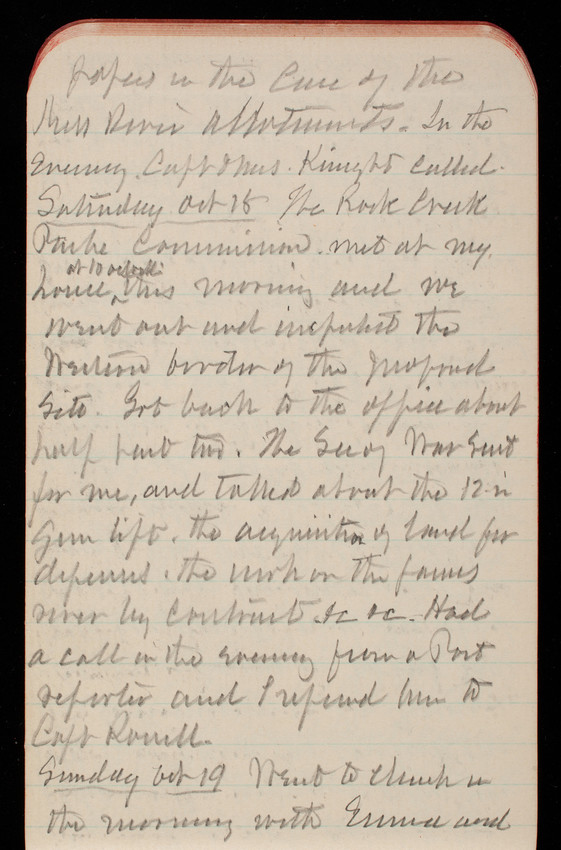 papers in the Case of the
Miss River Allotments. In the
Evening Capt Thos. Knight called.
Saturday Oct 18 The Rock Creek
Park Commission met at my
at 10 oclock
house, this morning and we
went out and inspected the
Western border of the proposed
site. Got back to the office about
half past two. The Secy War sent
for me, and talked about the 12 in
Gun lift, the acquisition of land for
defenses, the work on the James
river by contract &c &c. Had
a call in the evening from a Post
reporter and I referred him to
Capt Rossell.
Sunday Oct 19 Went to church in
the morning with Emma and